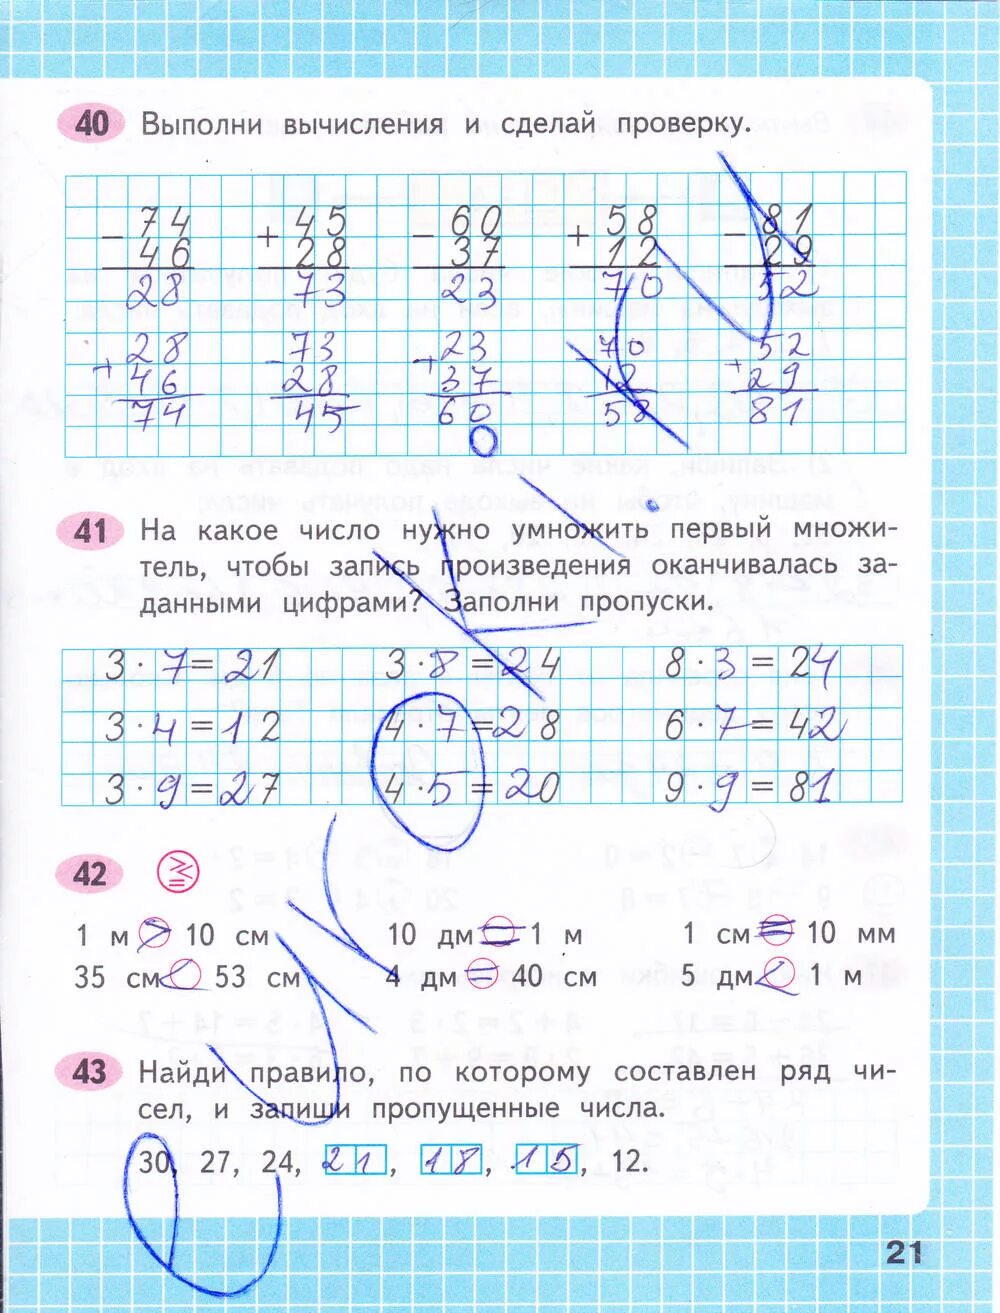 40 Выполни вычисления и сделай проверку.
74 45 60 58 81
− 46 + 28 − 37 + 12 − 29
28 73 23 70 52
28 73 23 70 52
+ 46 − 28 + 37 − 12 + 29
74 45 60 58 81
41 На какое число нужно умножить первый множи-
тель, чтобы запись произведения оканчивалась за-
данными цифрами? Заполни пропуски.
3 · 7 = 21 3 · 8 = 24 8 · 3 = 24
3 · 4 = 12 4 · 7 = 28 6 · 7 = 42
3 · 9 = 27 4 · 5 = 20 9 · 9 = 81
42
1 м > 10 см 10 дм = 1 м 1 см = 10 мм
35 см < 53 см 4 дм = 40 см 5 дм < 1 м
43 Найди правило, по которому составлен ряд чи-
сел, и запиши пропущенные числа.
30, 27, 24, 21, 18, 15, 12.
21